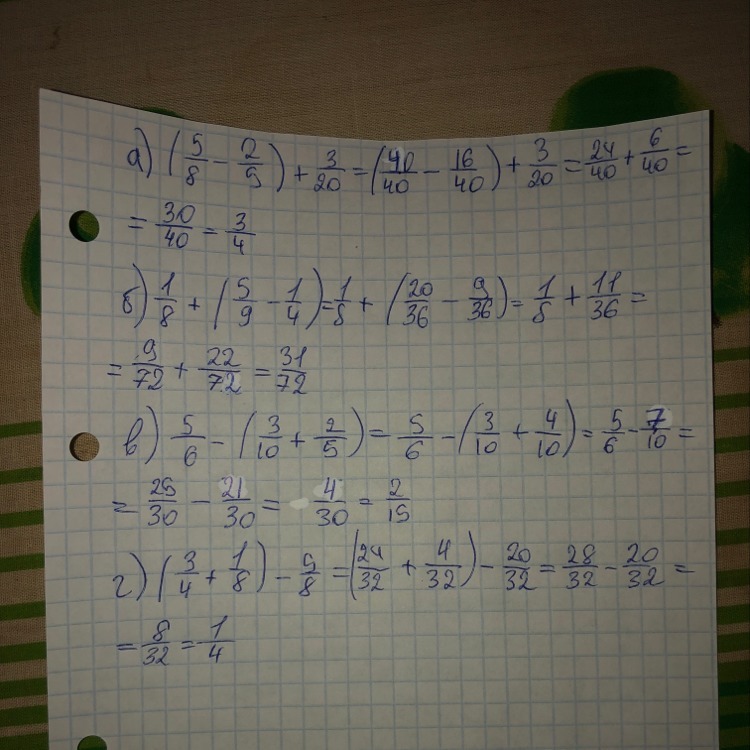 а) (5/8 - 2/5) + 3/20 = (40/40 - 16/40) + 3/20 = 24/40 + 6/40 =
= 30/40 = 3/4
б) 1/8 + (5/9 - 1/4) = 1/8 + (20/36 - 9/36) = 1/8 + 11/36 =
= 9/72 + 22/72 = 31/72
в) 5/6 - (3/10 + 2/5) = 5/6 - (3/10 + 4/10) = 5/6 - 7/10 =
= 25/30 - 21/30 = 4/30 = 2/15
г) (3/4 + 1/8) - 5/8 = (24/32 + 4/32) - 20/32 = 28/32 - 20/32 =
= 8/32 = 1/4